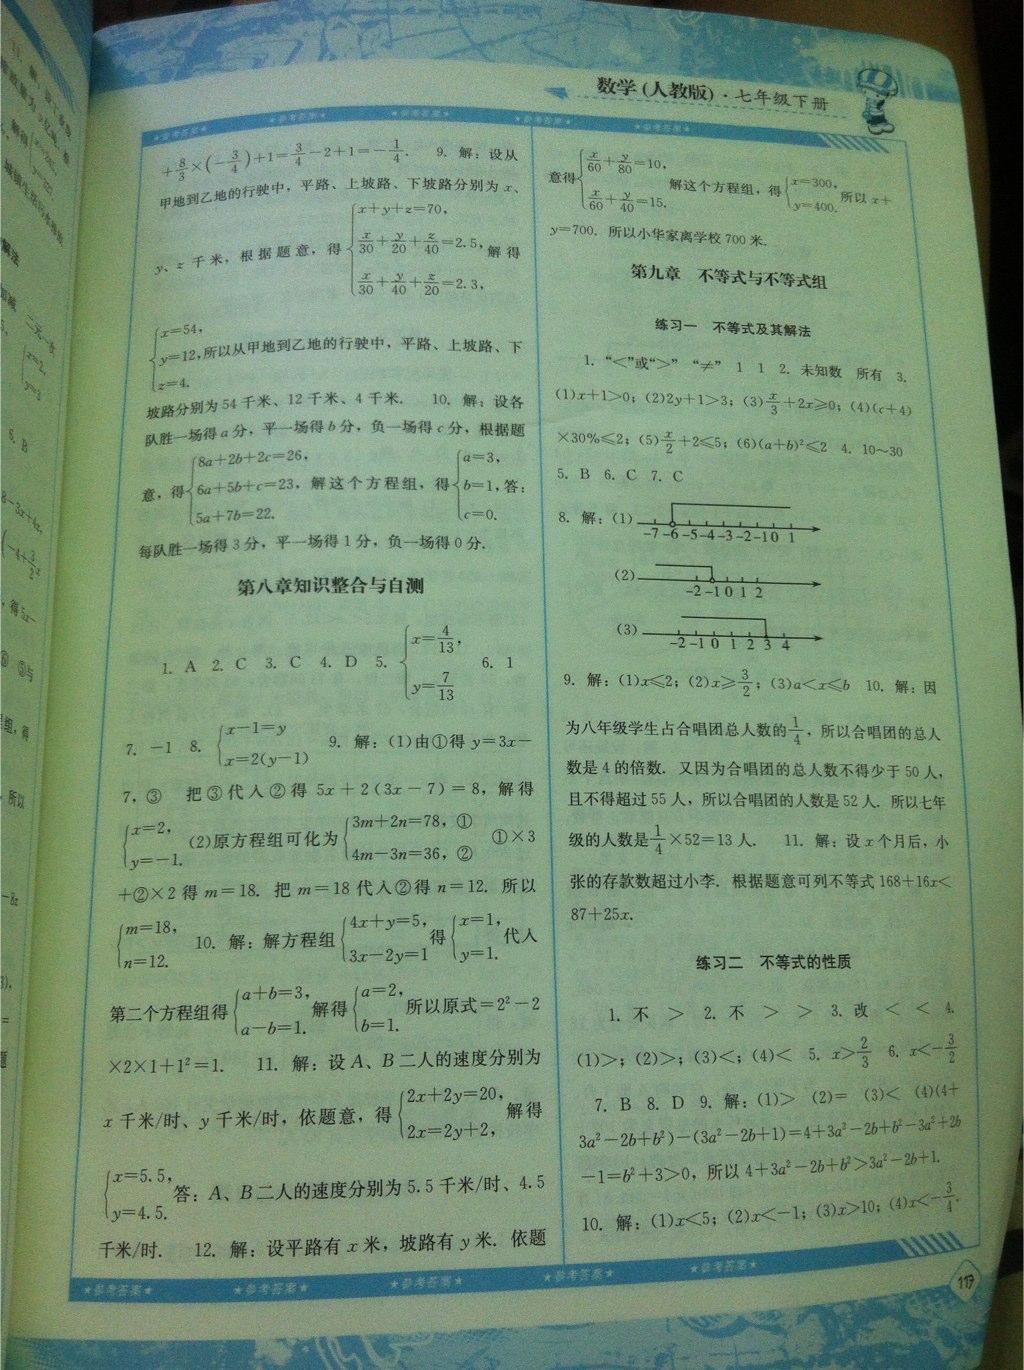 数学(人教版)·七年级下册
★参考答案★ ★参考答案★ ★参考答案★ ★参考答案★ ★参考答案★
+8/3×(-3/4)+1=3/4-2+1=-1/4. 9. 解：设从
甲地到乙地的行驶中，平路、上坡路、下坡路分别为 x、
y、z 千米，根据题意，得{x+y+z=70, x/30+y/20+z/40=2.5, x/30+y/40+z/20=2.3, 解得
{x=54, y=12, z=4. 所以从甲地到乙地的行驶中，平路、上坡路、下
坡路分别为 54 千米、12 千米、4 千米. 10. 解：设各
队胜一场得 a 分，平一场得 b 分，负一场得 c 分，根据题
意，得{8a+2b+2c=26, 6a+5b+c=23, 5a+7b=22. 解这个方程组，得{a=3, b=1, c=0. 答：
每队胜一场得 3 分，平一场得 1 分，负一场得 0 分.
第八章知识整合与自测
1. A 2. C 3. C 4. D 5. {x=4/13, y=7/13 6. 1
7. -1 8. {x-1=y x=2(y-1) 9. 解：(1)由①得 y=3x-
7，③ 把③代入②得 5x+2(3x-7)=8，解得
{x=2, y=-1. (2)原方程组可化为{3m+2n=78，① 4m-3n=36，② ①×3
+②×2 得 m=18. 把 m=18 代入②得 n=12. 所以
{m=18, n=12. 10. 解：解方程组{4x+y=5, 3x-2y=1 得{x=1, y=1. 代入
第二个方程组得{a+b=3, a-b=1. 解得{a=2, b=1. 所以原式=2²-2
×2×1+1²=1. 11. 解：设 A、B 二人的速度分别为
x 千米/时、y 千米/时，依题意，得{2x+2y=20, 2x=2y+2, 解得
{x=5.5, y=4.5. 答：A、B 二人的速度分别为 5.5 千米/时、4.5
千米/时. 12. 解：设平路有 x 米，坡路有 y 米. 依题
意得{x/60+y/80=10, x/60+y/40=15. 解这个方程组，得{x=300, y=400. 所以 x+
y=700. 所以小华家离学校 700 米.
第九章 不等式与不等式组
练习一 不等式及其解法
1. “<”或“>” “≠” 1 1 2. 未知数 所有 3.
(1)x+1>0；(2)2y+1>3；(3)x/3+2x≥0；(4)(c+4)
×30%≤2；(5)x/2+2≤5；(6)(a+b)²≤2 4. 10～30
5. B 6. C 7. C
8. 解：(1) -7 -6 -5 -4 -3 -2 -1 0 1
(2) -2 -1 0 1 2
(3) -2 -1 0 1 2 3 4
9. 解：(1)x≤2；(2)x≥3/2；(3)a<x≤b 10. 解：因
为八年级学生占合唱团总人数的1/4，所以合唱团的总人
数是 4 的倍数. 又因为合唱团的总人数不得少于 50 人，
且不得超过 55 人，所以合唱团的人数是 52 人. 所以七年
级的人数是1/4×52=13 人. 11. 解：设 x 个月后，小
张的存款数超过小李. 根据题意可列不等式 168+16x<
87+25x.
练习二 不等式的性质
1. 不 > 2. 不 > > 3. 改 < < 4.
(1)>；(2)>；(3)<；(4)< 5. x>2/3 6. x<-3/2
7. B 8. D 9. 解：(1)> (2)= (3)< (4)(4+
3a²-2b+b²)-(3a²-2b+1)=4+3a²-2b+b²-3a²+2b
-1=b²+3>0，所以 4+3a²-2b+b²>3a²-2b+1.
10. 解：(1)x<5；(2)x<-1；(3)x>10；(4)x<-3/4.
★参考答案★ ★参考答案★ ★参考答案★ ★参考答案★ ★参考答案★
117